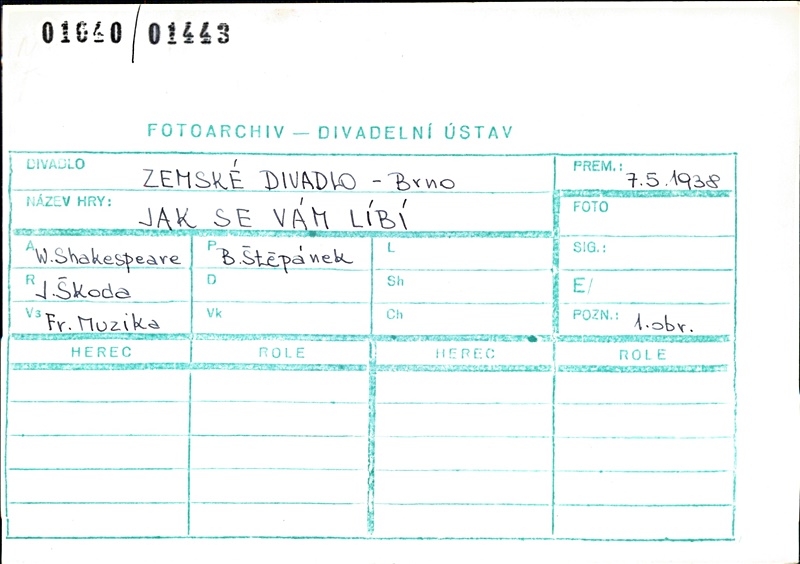 01040/01443
FOTOARCHIV — DIVADELNÍ ÚSTAV
DIVADLO ZEMSKÉ DIVADLO - Brno PREM.: 7.5.1938
NÁZEV HRY: JAK SE VÁM LÍBÍ FOTO
A W.Shakespeare P B.Štěpánek L SIG.:
R J.Škoda D Sh E/
Vs Fr. Muzika Vk Ch POZN.: 1.obr.
HEREC ROLE HEREC ROLE